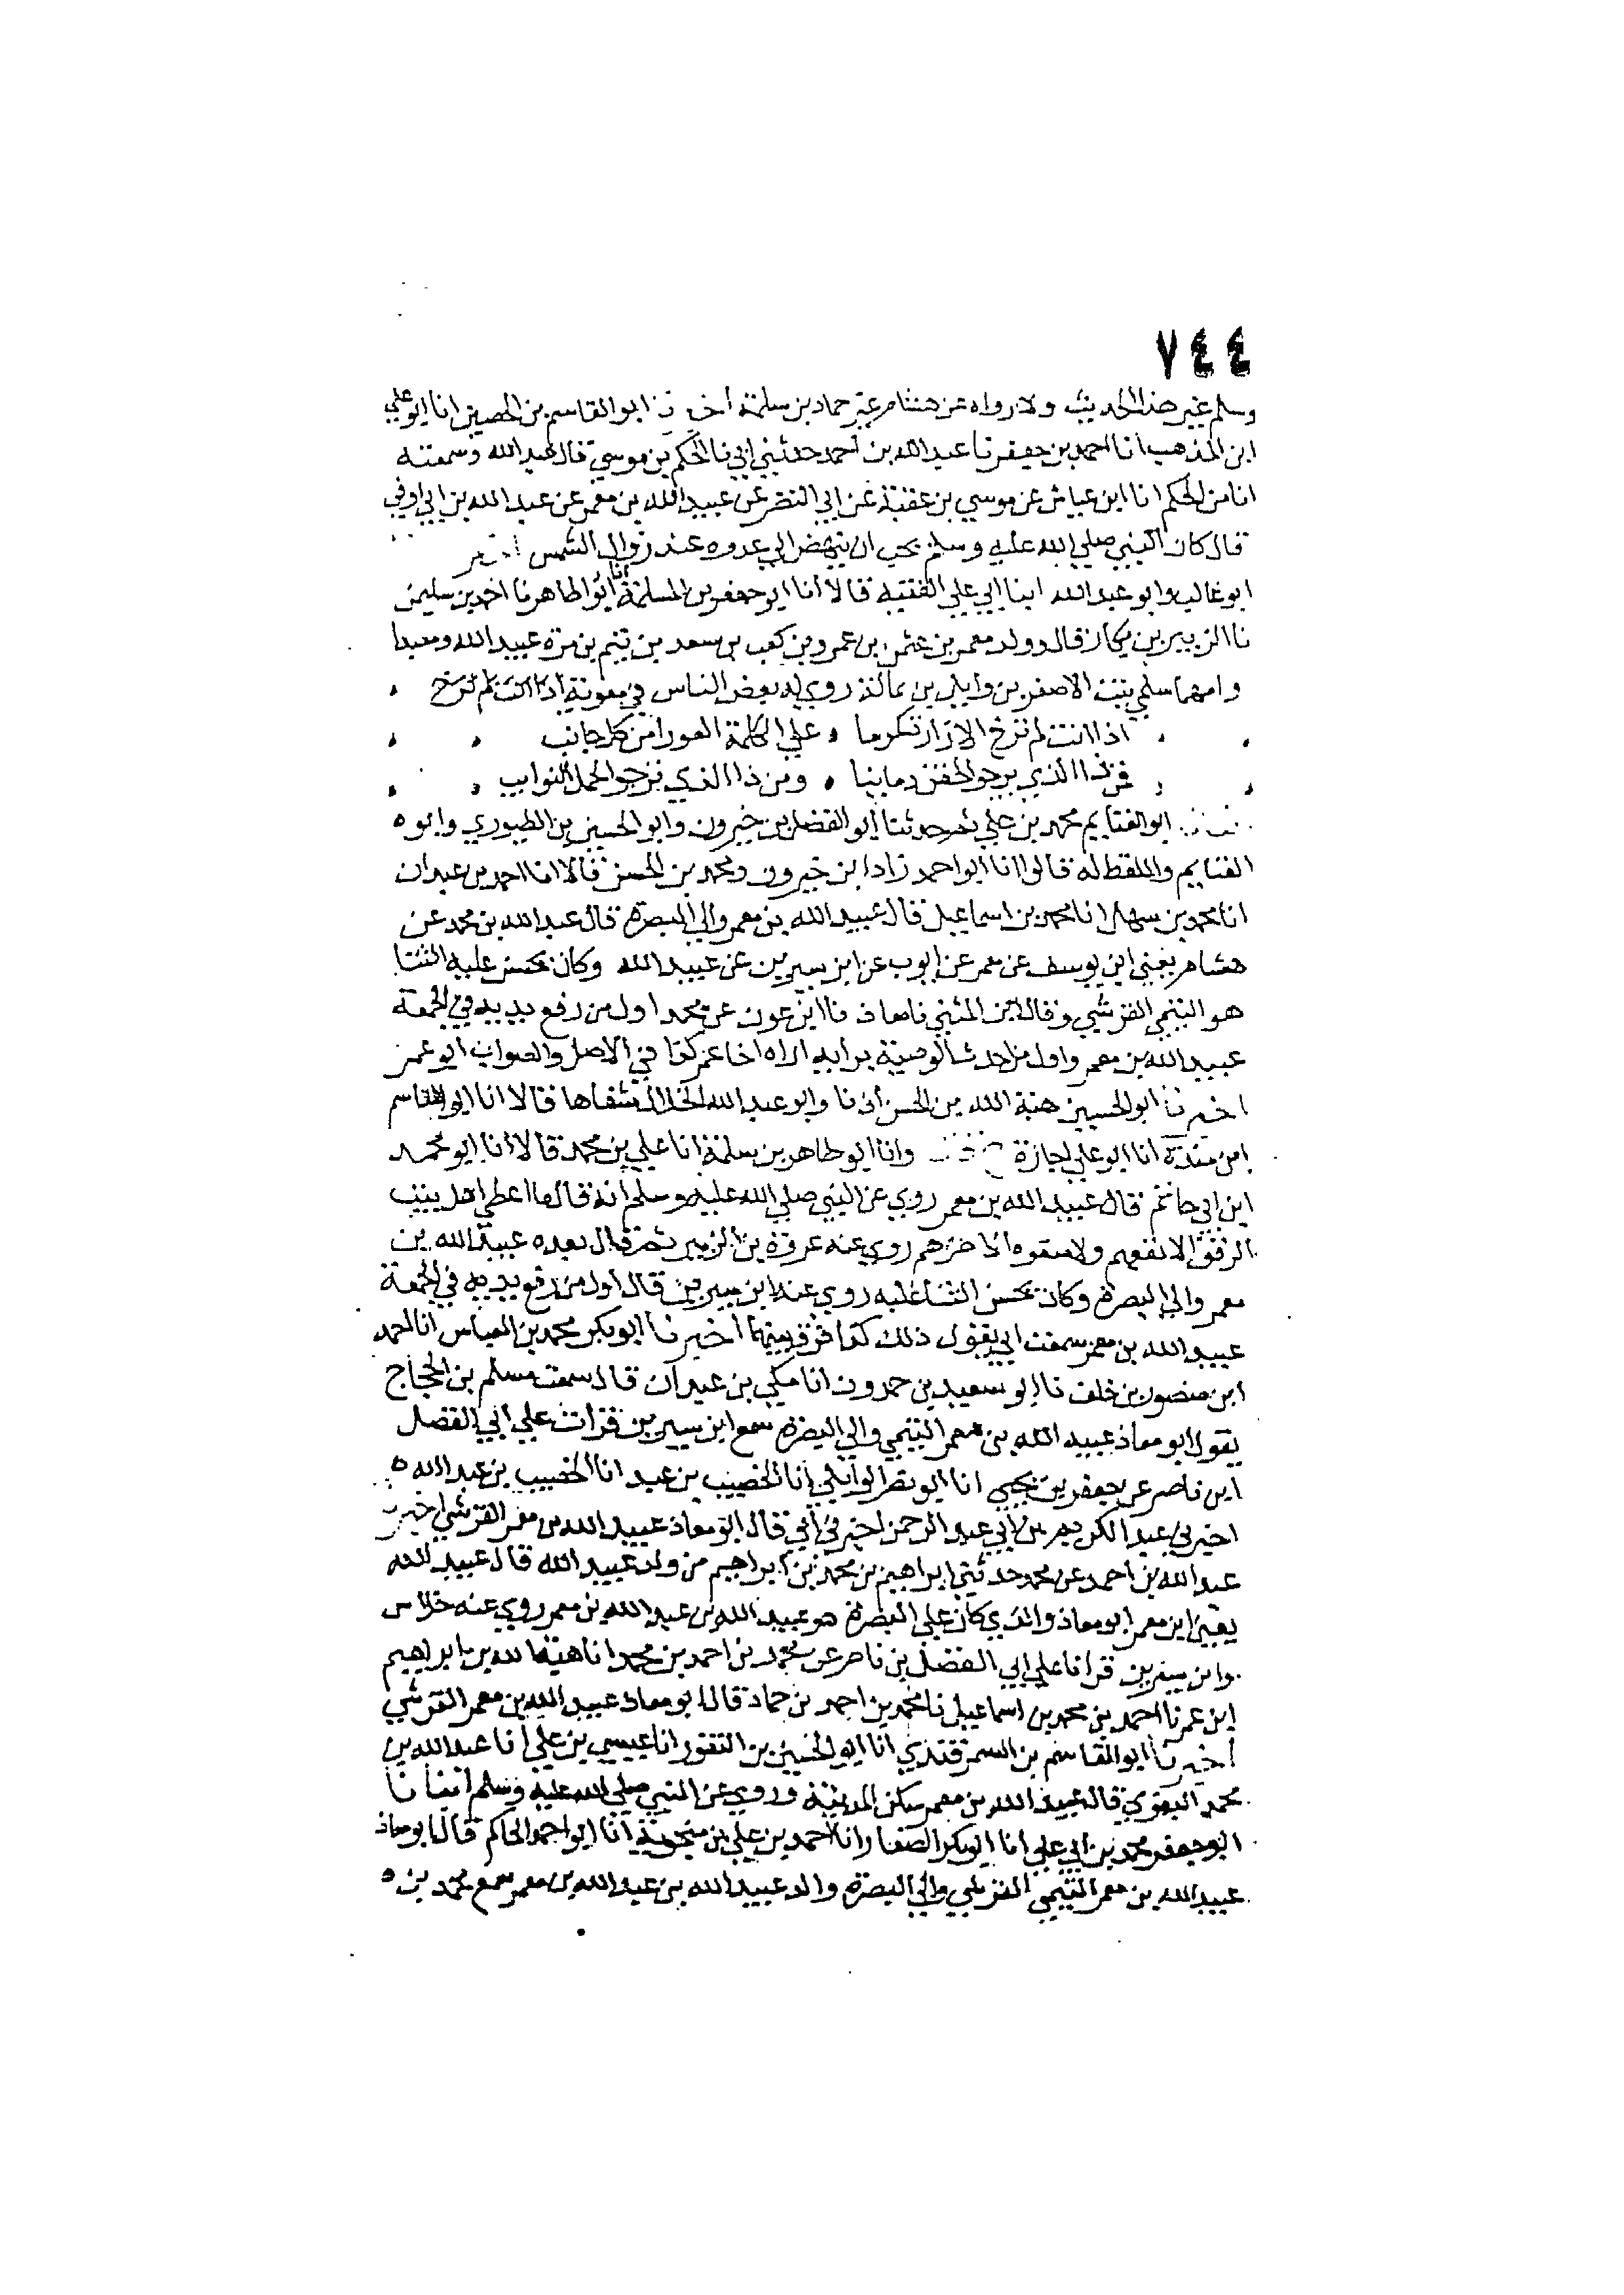 ٧٤٤
وسلم غير هذا الحديث ولا رواه عن هشام غير حماد بن سلمة أخبرنا ابو القاسم بن الحصين انا ابو علي
ابن المذهب انا احمد بن جعفر نا عبد الله بن احمد حدثني ابي نا الحكم بن موسي قال عبد الله وسمعته
انا من الحكم انا ابن عياش عن موسي بن عقبة عن ابي النضر عن عبيد الله بن معمر عن عبد الله بن ابي اوفي
قال كان النبي صلي الله عليه وسلم يحب ان ينهض الي عدوه عند زوال الشمس
ابو غالب وابو عبد الله ابنا ابي علي الفقيه قالا انا ابو جعفر بن المسلمة أنا ابو طاهر نا احمد بن سليمن
نا الزبير بن بكار قال وولد معمر بن عثمن بن عمرو بن كعب بن سعد بن تيم بن مرة عبيد الله ومعبدا
وامهما سلمي بنت الاصفر بن وايل بن ثمالة روي له بعض الناس في معوية اذا انت لم ترخ
اذا انت لم ترخ الازار تكرما علي الكلمة العورا من كل جانب
فمن ذا الذي يرجو لحقن دماينا ومن ذا الذي نرجو لحمل النوايب
ابو الغنايم محمد بن علي ثم حدثنا ابو الفضل بن خيرون وابو الحسين بن الطيوري وابوه
الغنايم واللفظ له قالوا انا ابو احمد زاد ابن خيرون ومحمد بن الحسن قالا انا احمد بن عبدان
انا محمد بن سهل انا محمد بن اسماعيل قال عبيد الله بن معمر والي البصرة قال عبد الله بن محمد عن
هشام يعني ابن يوسف عن معمر عن ايوب عن ابن سيرين عن عبيد الله وكان يحسن عليه الثنا
هو التيمي القرشي وقال ابن المثني نا معاذ نا ابن عون عن محمد اول من رفع يديه في الجمعة
عبيد الله بن معمر واول من احدث الوصية برايه اراه اخا عمر كذا في الاصل والصواب ابو عمر
اخبرنا ابو الحسين هبة الله بن الحسن اذنا وابو عبد الله الخلال شفاها قالا انا ابو القاسم
ابن مندة انا ابو علي اجازة وانا ابو طاهر بن سلمة انا علي بن محمد قالا انا ابو محمد
ابن ابي حاتم قال عبيد الله بن معمر روي عن النبي صلي الله عليه وسلم انه قال ما اعطي اهل بيت
الرفق الا نفعهم ولا منعوه الا ضرهم روي عنه عروة بن الزبير ثم قال بعده عبيد الله بن
معمر والي البصرة وكان يحسن الثنا عليه روي عنه ابن سيرين قال اول من رفع يديه في الجمعة
عبيد الله بن معمر سمعت ابي يقول ذلك كذا فرق بينهما اخبرنا ابو بكر محمد بن العباس انا احمد
ابن منصور بن خلف نا ابو سعيد بن حمدون انا مكي بن عبدان قال سمعت مسلم بن الحجاج
يقول ابو معاذ عبيد الله بن معمر التيمي والي البصرة سمع ابن سيرين قرات علي ابي الفضل
ابن ناصر عن جعفر بن يحيي انا ابو نصر الوايلي انا الخصيب بن عبد انا الخصيب بن عبد الله ه
اخبرني عبد الكريم بن ابي عبد الرحمن اخبرني ابي قال ابو معاذ عبيد الله بن معمر القرشي اخبرنا
عبد الله بن احمد عن محمد حدثني ابراهيم بن محمد بن ابراهيم من ولد عبيد الله قال عبيد الله
يعني ابن معمر ابو معاذ والذي كان علي البصرة هو عبيد الله بن عبد الله بن معمر روي عنه خلاس
وابن سيرين قرانا علي ابي الفضل بن ناصر عن محمد بن احمد بن محمد انا هبة الله بن ابراهيم
ابن عمر نا احمد بن محمد بن اسماعيل نا محمد بن احمد بن حماد قال ابو معاذ عبيد الله بن معمر القرشي
اخبرنا ابو القاسم بن السمرقندي انا ابو الحسين بن النقور انا عيسي بن علي انا عبد الله بن
محمد البغوي قال عبيد الله بن معمر سكن المدينة وروي عن النبي صلي الله عليه وسلم انبانا
ابو جعفر محمد بن ابي علي انا ابو بكر الصفار انا احمد بن علي بن منجويه انا ابو احمد الحاكم قال ابو معاذ
عبيد الله بن معمر التيمي القرشي والي البصرة والد عبيد الله بن عبد الله بن معمر سمع محمد بن ه